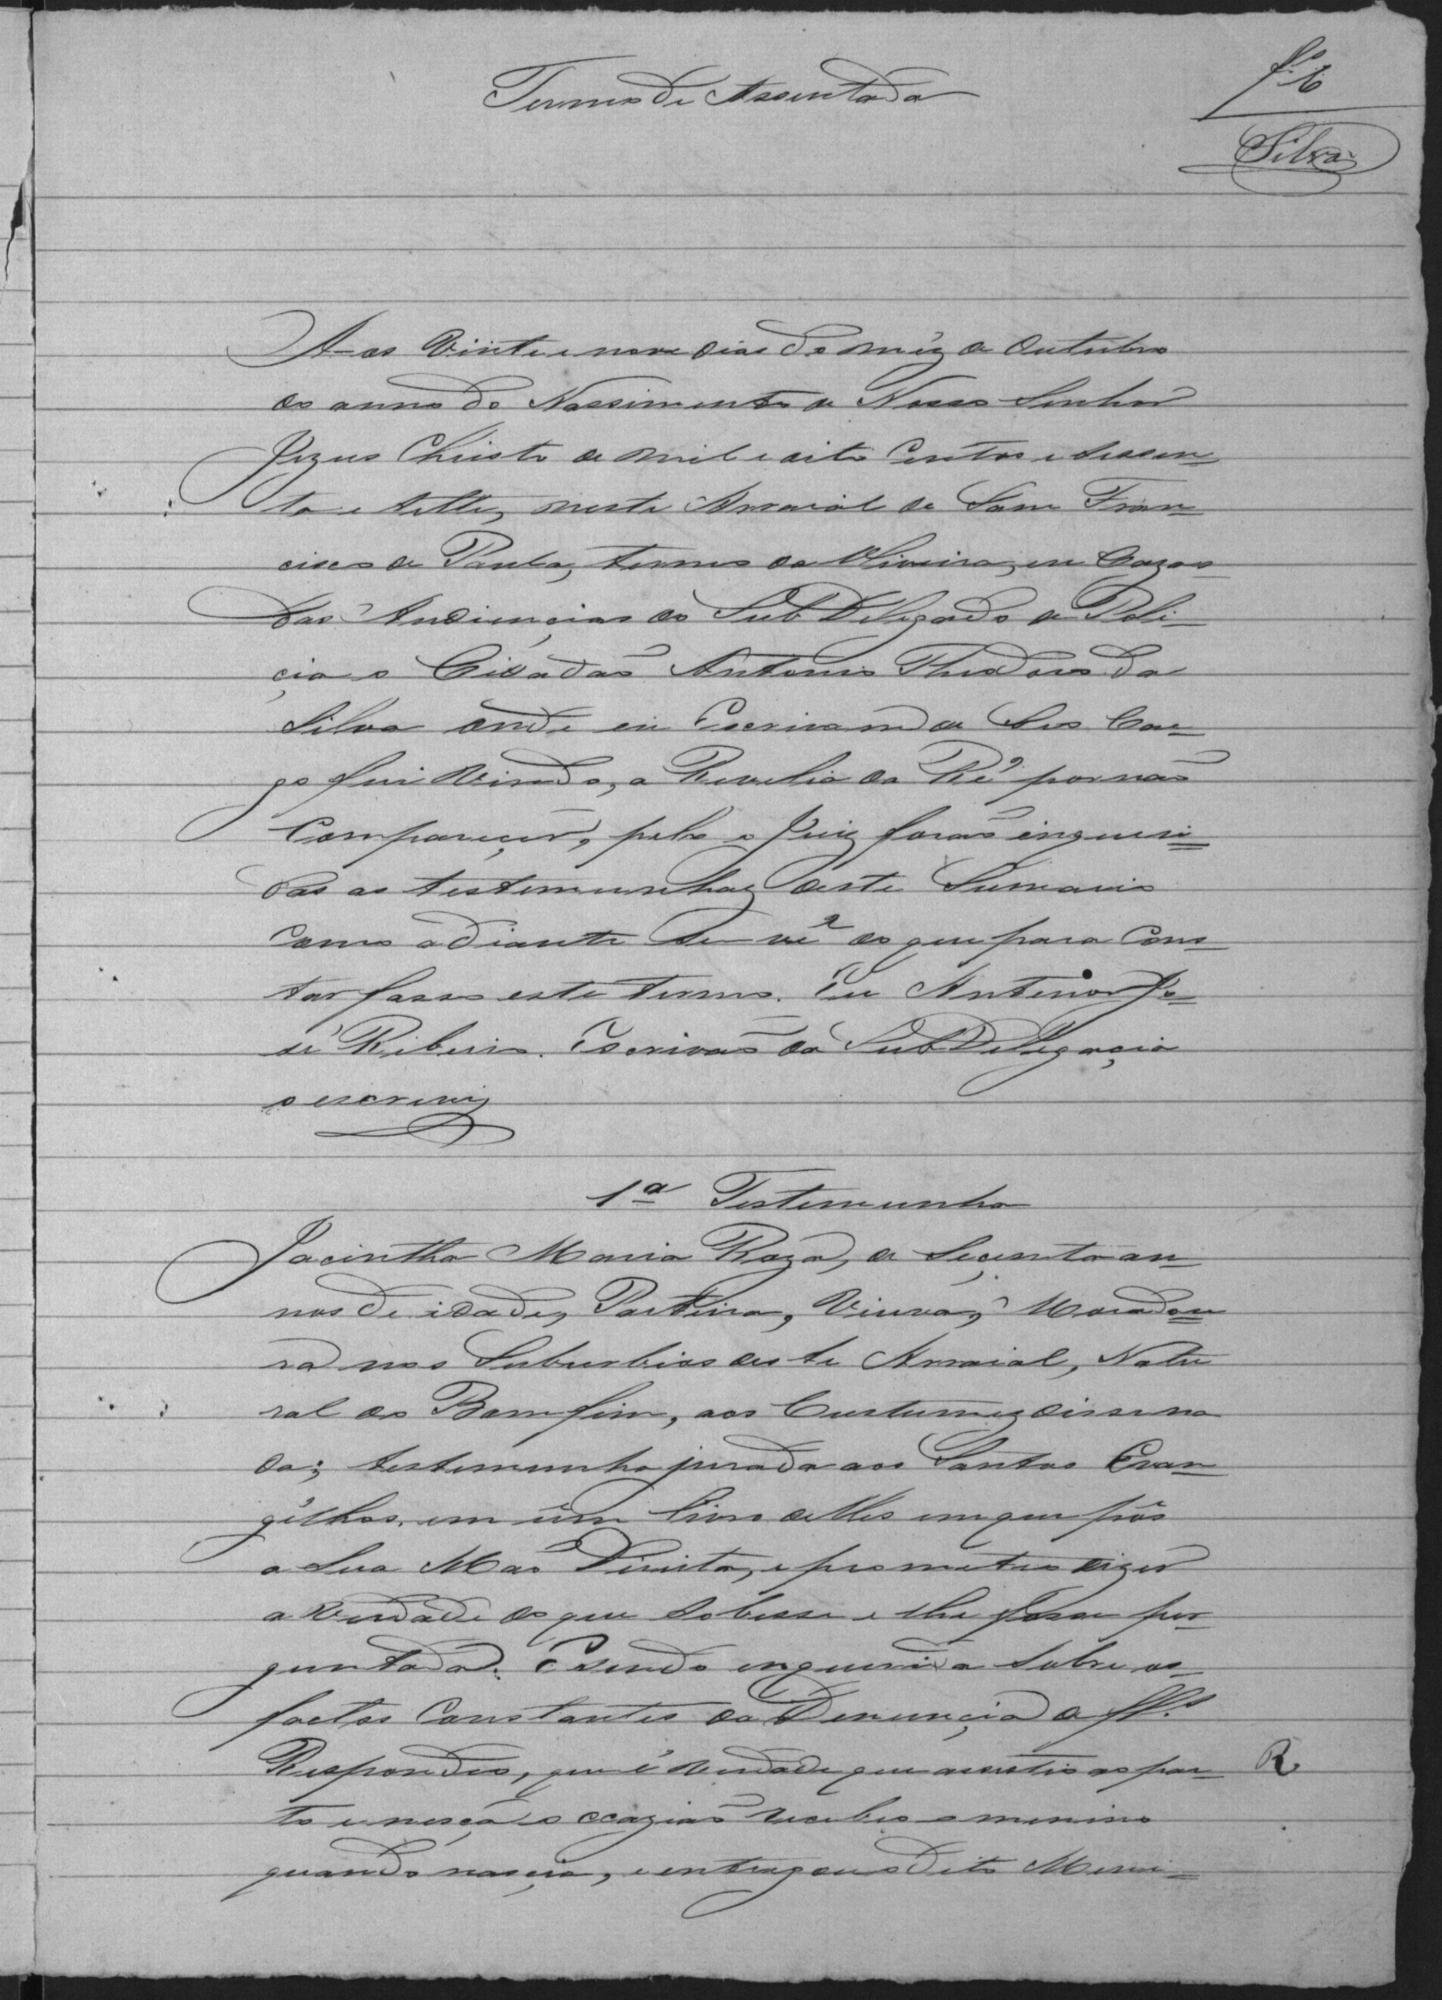 Termo de Assentada
fl 6
Silva
A-os vinte e nove dias do mêz de Outubro
do anno do Nassimento de Nosso Senhor
Jezus Christo de mil e oito Centos e sessen-
ta e sette, neste Arraial de Sam Fran-
cisco de Paula, termo da Oliveira, em Cazas
das Audiencias do Sub Delegado de Poli-
çia o Cidadão Antonio Theodoro da
Silva onde eu Escrivam de Seo Car-
go fui vindo, a Revelia da Ré por não
Compareçer, pelo o Juiz forão inqueri-
das as testemunhaz deste Sumario
Como adiante se vê do que para Cons-
tar fasso este termo. Eu Antenor Jo-
sé Ribeiro. Escrivão da Sub Delegaçia
o escrevi
1ª Testemunha
Jacintha Maria Roza, de Seçenta an-
nos de idade, Parteira, Viuva, Moradou-
ra nos Suburbios deste Arraial, Natu
ral do Bomfim, aos Custumez disse na
da; testemunha jurada aos Santos Evan-
gélhos em um livro delles em que pôs
a Sua Mão Direita, e prometeo dizer
a Verdade do que Sobesse e lhe fosse per-
guntada. E sendo inquerida Sobre os
factos Constantes da Denunçia de ff.s
Respondeo, que é verdade que assistio ao par-
R
to e nesça o ccazião recebeo o menino
quando nasçia, e entregou o dito Meni-